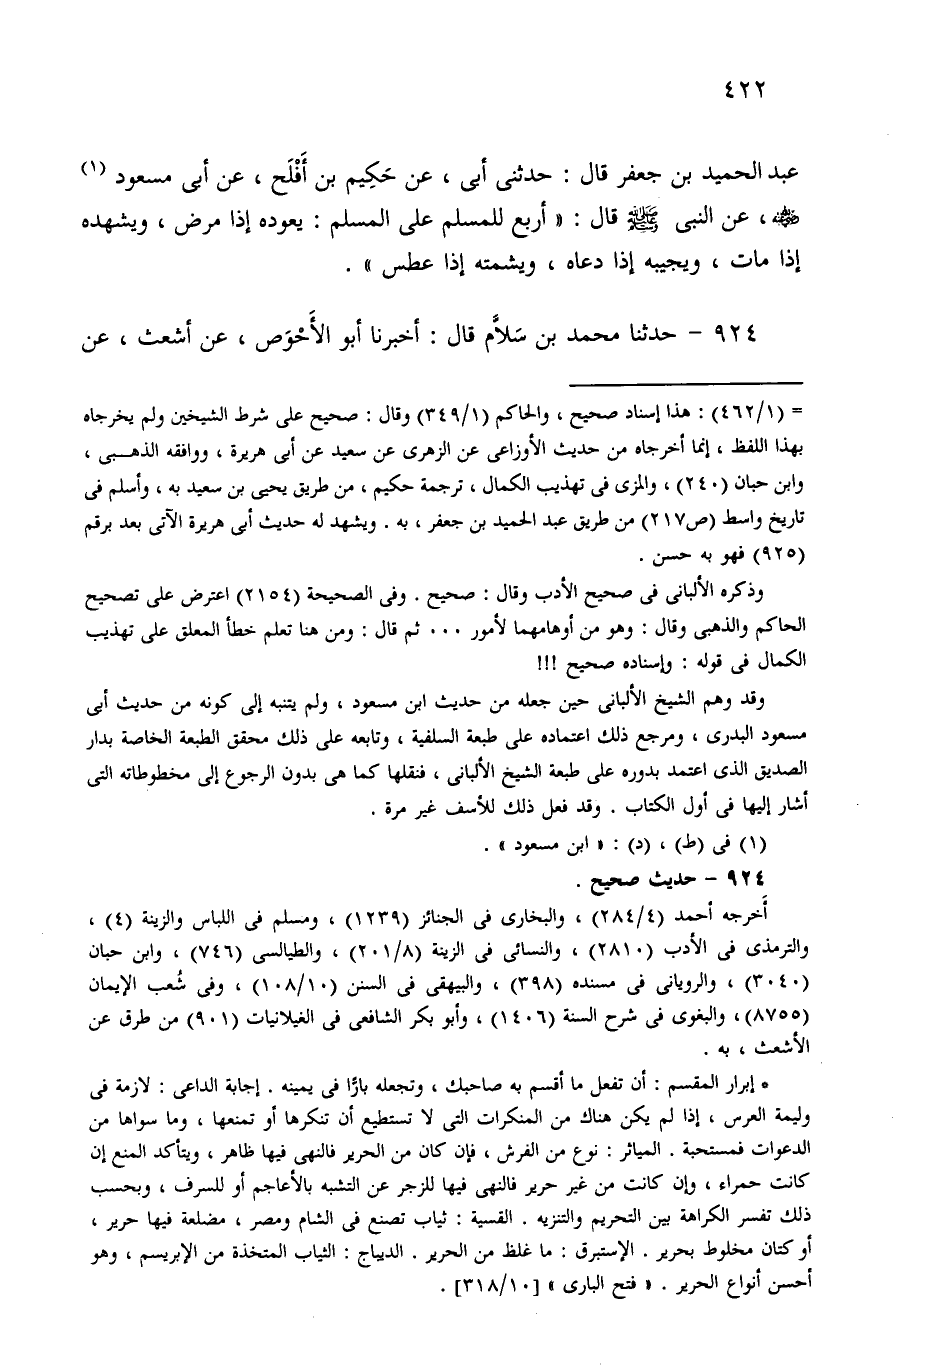 ٤٢٢
عبد الحميد بن جعفر قال : حدثنى أبى ، عن حَكِيم بن أَفْلَح ، عن أبى مسعود (١)
رضي الله عنه ، عن النبى ﷺ قال : « أربع للمسلم على المسلم : يعوده إذا مرض ، ويشهده
إذا مات ، ويجيبه إذا دعاه ، ويشمته إذا عطس » .
٩٢٤ – حدثنا محمد بن سَلاَّم قال : أخبرنا أبو الأَحْوَص ، عن أشعث ، عن
= (٤٦٢/١) : هذا إسناد صحيح ، والحاكم (٣٤٩/١) وقال : صحيح على شرط الشيخين ولم يخرجاه
بهذا اللفظ ، إنما أخرجاه من حديث الأوزاعى عن الزهرى عن سعيد عن أبى هريرة ، ووافقه الذهـبى ،
وابن حبان (٢٤٠) ، والمزى فى تهذيب الكمال ، ترجمة حكيم ، من طريق يحيى بن سعيد به ، وأسلم فى
تاريخ واسط (ص٢١٧) من طريق عبد الحميد بن جعفر ، به . ويشهد له حديث أبى هريرة الآتى بعد برقم
(٩٢٥) فهو به حسن .
وذكره الألبانى فى صحيح الأدب وقال : صحيح . وفى الصحيحة (٢١٥٤) اعترض على تصحيح
الحاكم والذهبى وقال : وهو من أوهامهما لأمور ... ثم قال : ومن هنا تعلم خطأ المعلق على تهذيب
الكمال فى قوله : وإسناده صحيح !!!
وقد وهم الشيخ الألبانى حين جعله من حديث ابن مسعود ، ولم يتنبه إلى كونه من حديث أبى
مسعود البدرى ، ومرجع ذلك اعتماده على طبعة السلفية ، وتابعه على ذلك محقق الطبعة الخاصة بدار
الصديق الذى اعتمد بدوره على طبعة الشيخ الألبانى ، فنقلها كما هى بدون الرجوع إلى مخطوطاته التى
أشار إليها فى أول الكتاب . وقد فعل ذلك للأسف غير مرة .
(١) فى (ط) ، (د) : « ابن مسعود » .
٩٢٤ – حديث صحيح .
أخرجه أحمد (٢٨٤/٤) ، والبخارى فى الجنائز (١٢٣٩) ، ومسلم فى اللباس والزينة (٤) ،
والترمذى فى الأدب (٢٨١٠) ، والنسائى فى الزينة (٢٠١/٨) ، والطيالسى (٧٤٦) ، وابن حبان
(٣٠٤٠) ، والرويانى فى مسنده (٣٩٨) ، والبيهقى فى السنن (١٠٨/١٠) ، وفى شُعب الإيمان
(٨٧٥٥)، والبغوى فى شرح السنة (١٤٠٦) ، وأبو بكر الشافعى فى الغيلانيات (٩٠١) من طرق عن
الأشعث ، به .
* إبرار المقسم : أن تفعل ما أقسم به صاحبك ، وتجعله بارًّا فى يمينه . إجابة الداعى : لازمة فى
وليمة العرس ، إذا لم يكن هناك من المنكرات التى لا تستطيع أن تنكرها أو تمنعها ، وما سواها من
الدعوات فمستحبة . المياثر : نوع من الفرش ، فإن كان من الحرير فالنهى فيها ظاهر ، ويتأكد المنع إن
كانت حمراء ، وإن كانت من غير حرير فالنهى فيها للزجر عن التشبه بالأعاجم أو للسرف ، وبحسب
ذلك تفسر الكراهة بين التحريم والتنزيه . القسية : ثياب تصنع فى الشام ومصر ، مضلعة فيها حرير ،
أو كتان مخلوط بحرير . الإستبرق : ما غلظ من الحرير . الديباج : الثياب المتخذة من الإبريسم ، وهو
أحسن أنواع الحرير . « فتح البارى » [٣١٨/١٠] .